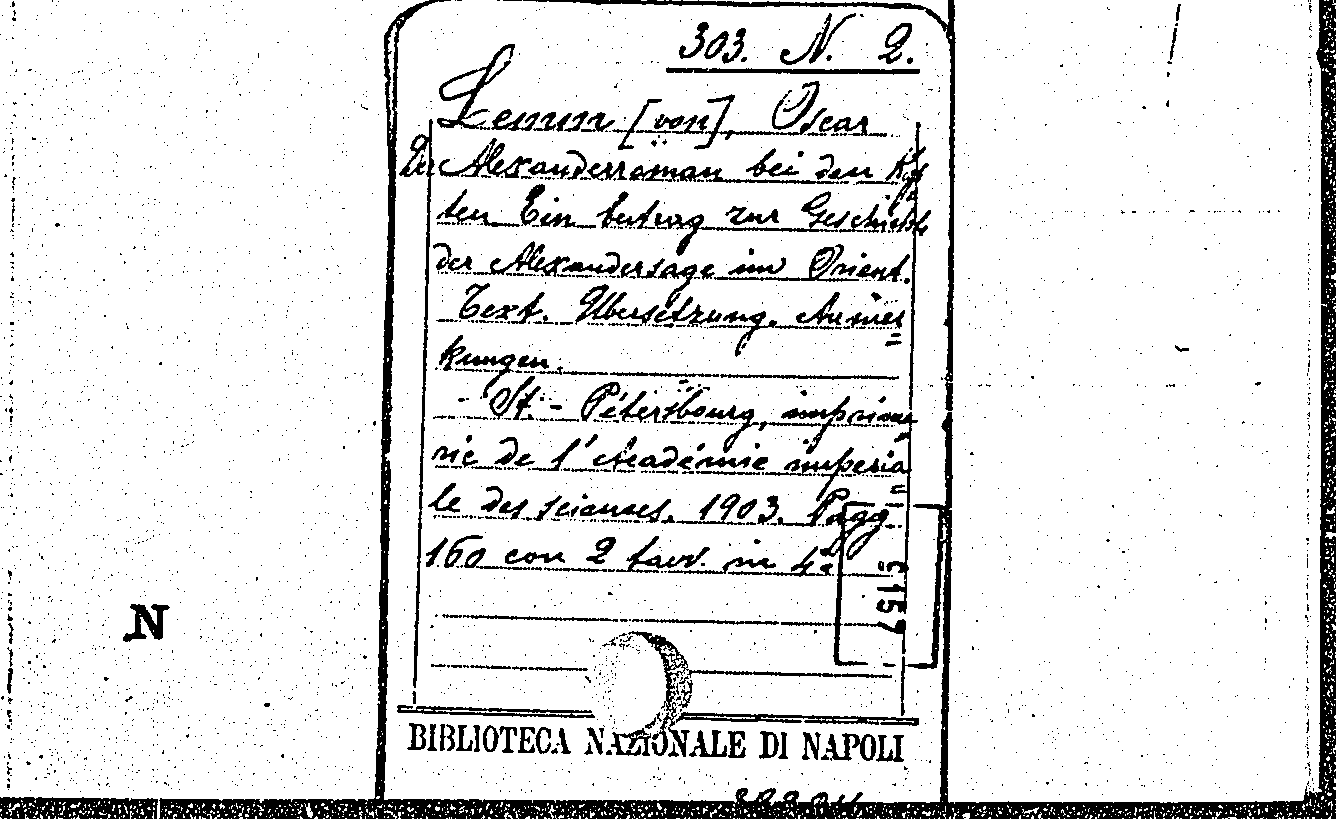 303. N. 2.
Lemm [von], Oscar
Der Alexanderroman bei den Kop
ten Ein beitrag zur Geschichte
der Alexandersage im Orient.
Text. Übersetzung. Anmer=
kungen.
- St. - Pétersbourg, imprime=
rie de l'Académie imperia=
le des sciences. 1903. Pagg.
160 con 2 tavv. in 4º
157
N
BIBLIOTECA NAZIONALE DI NAPOLI